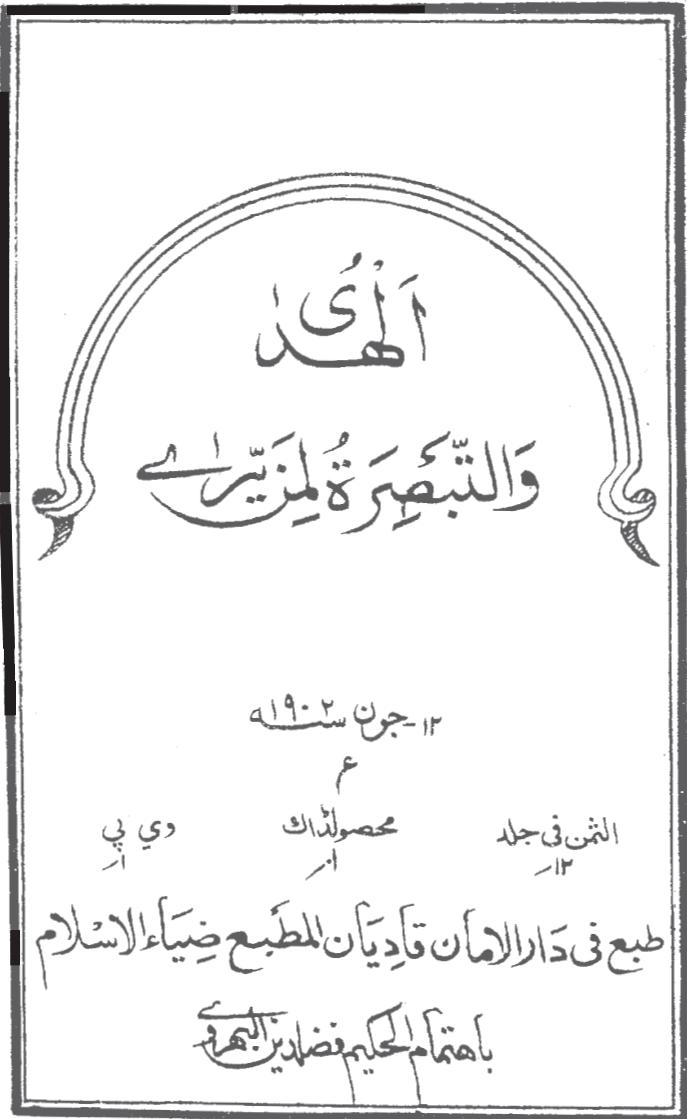 اَلْهُدٰى
وَالتَّبْصِرَةُ لِمَنْ يَّرٰے
١٢-جون سنه ١٩٠٢
ء
الثمن فی جلد محصولڈاك وي پي
١٢؍ ١؍
طبع فی دَار الامان قَادِيَان المطَبع ضِيَاء الاسْلام
باهتمام الحكيم فضلدين البهيروے